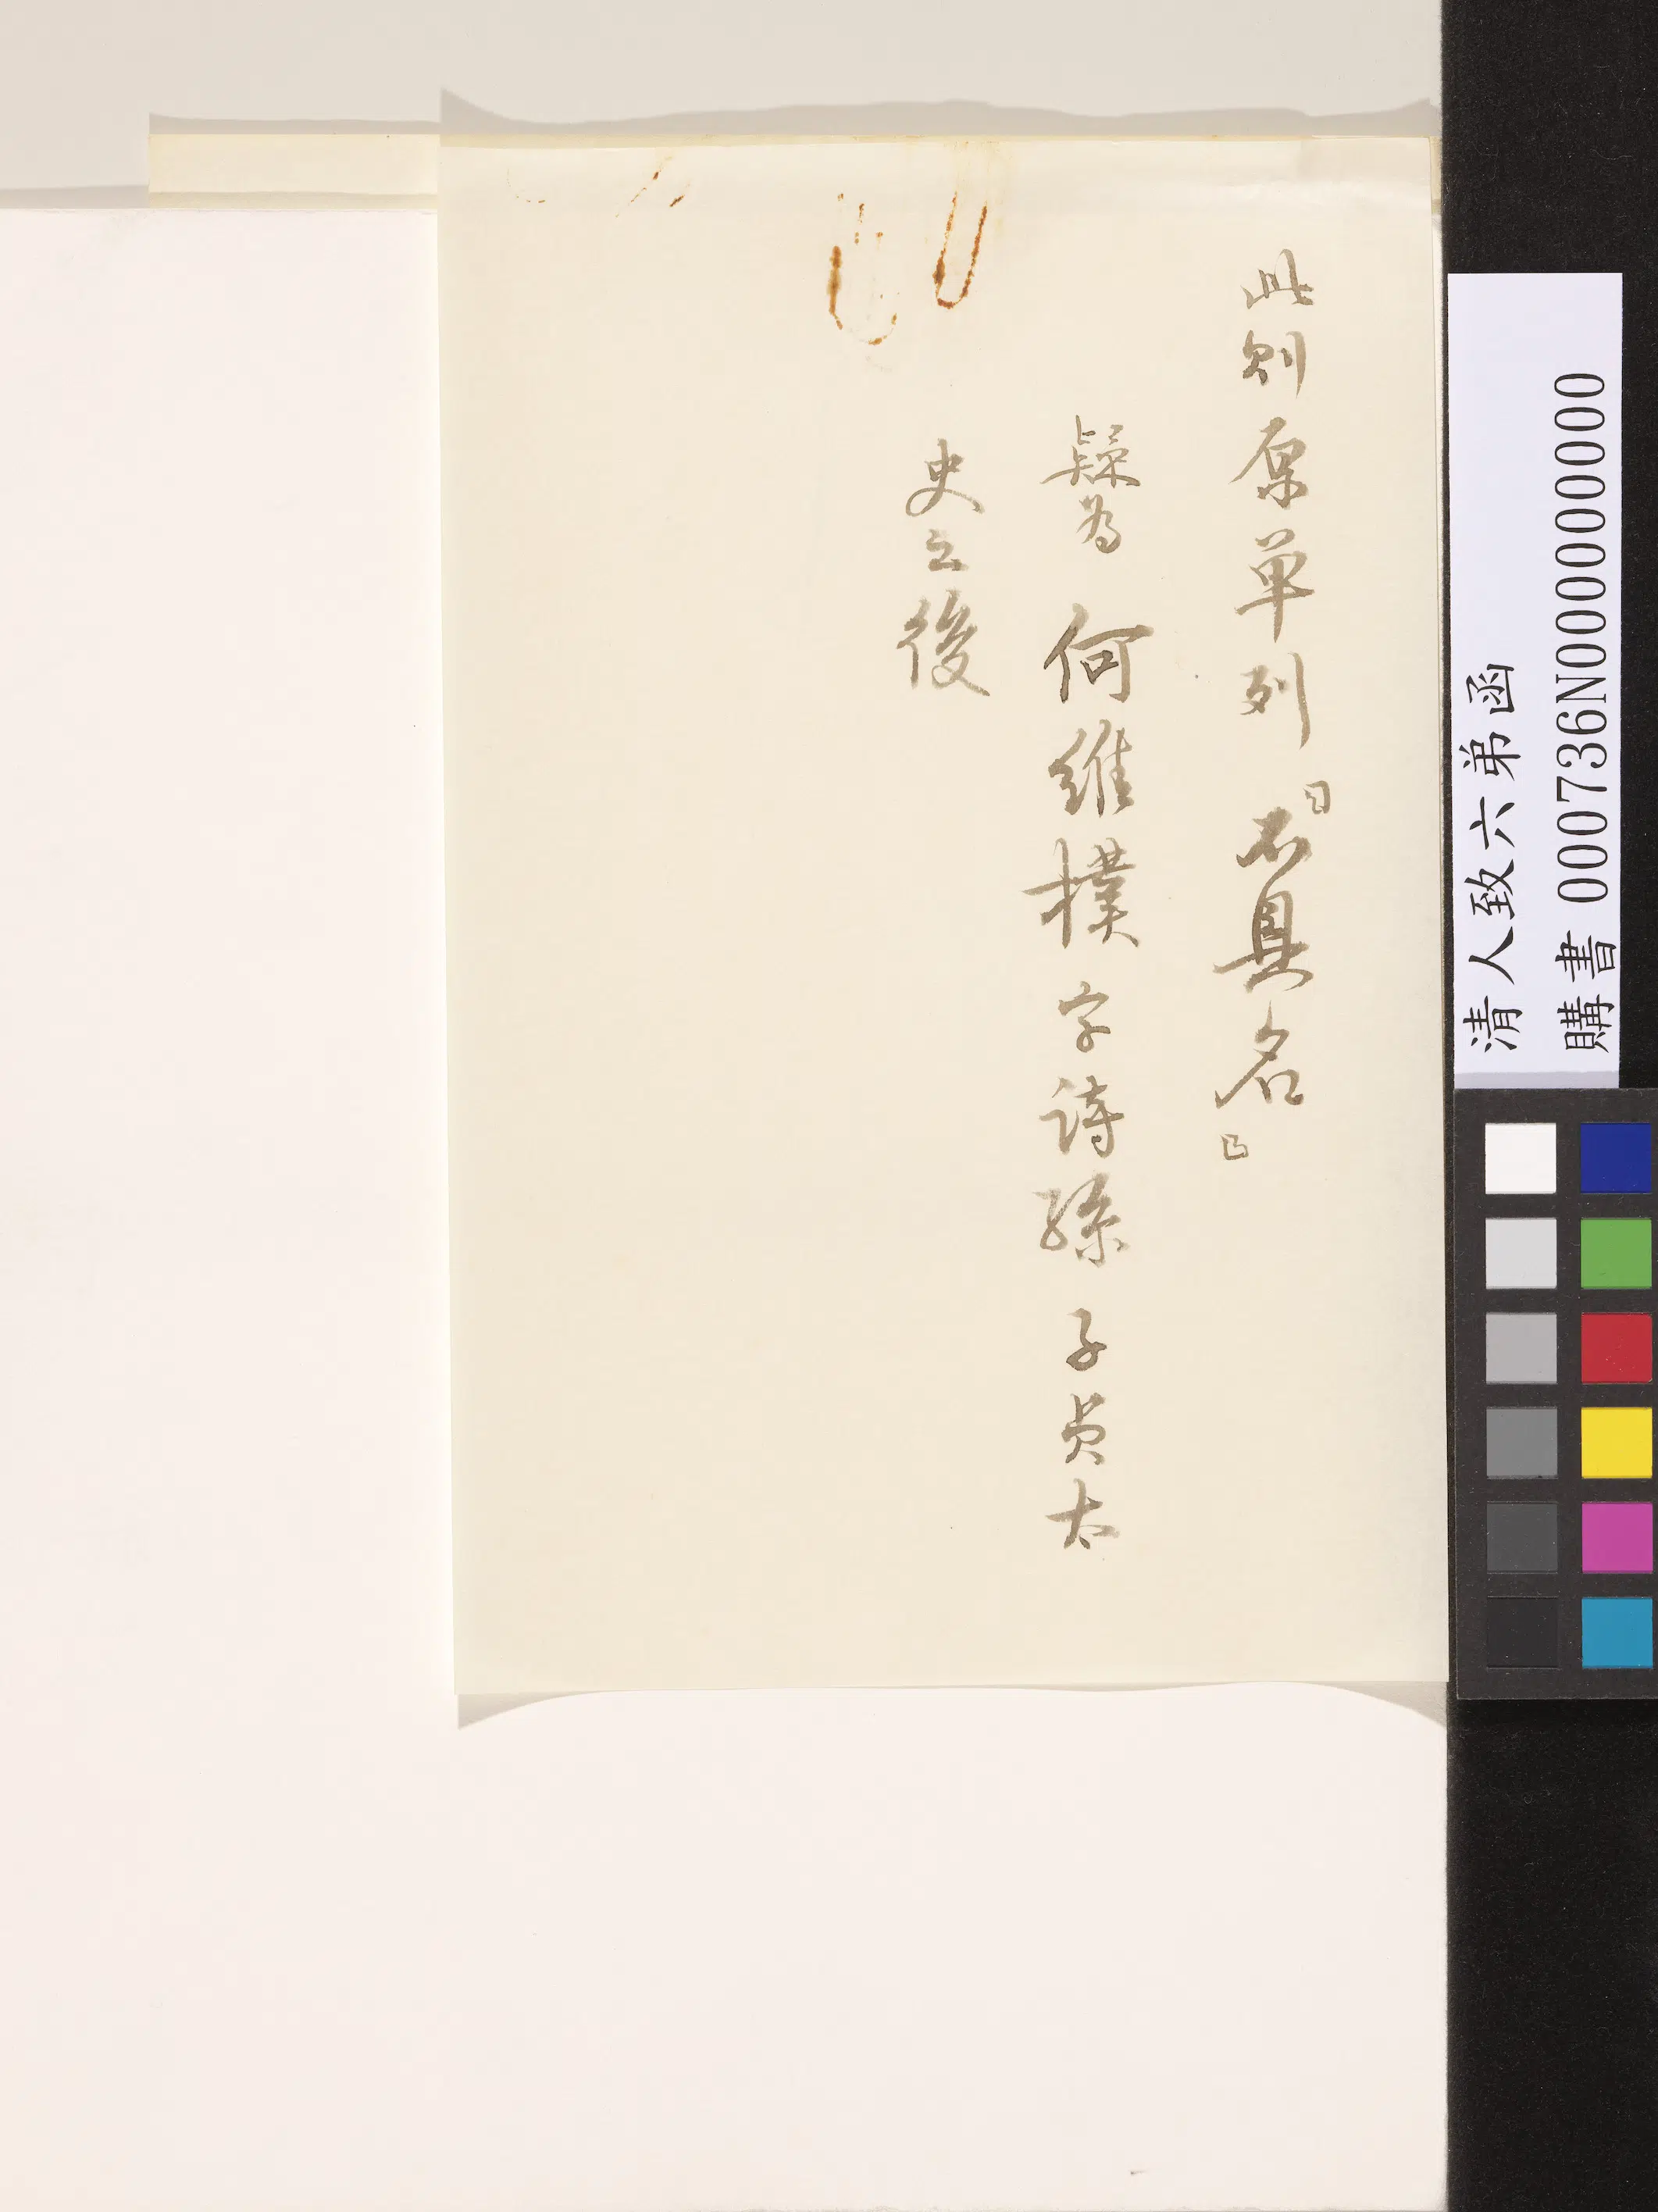 此則原單列「不具名」
疑為 何維樸字詩孫 子貞太
史之後
清人致六弟函
購書 000736N000000000